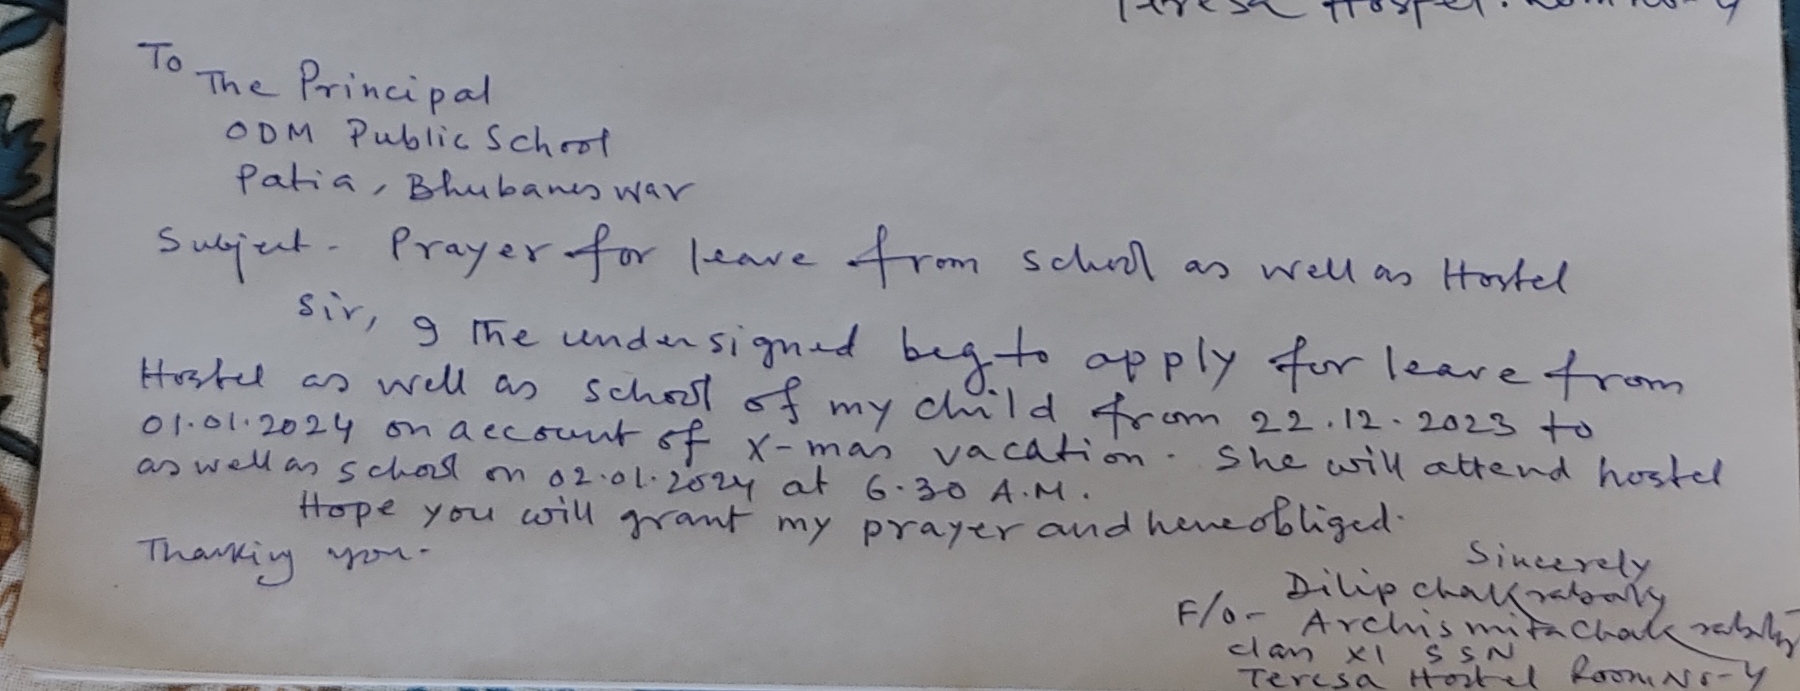 Teresa Hostel. Room No-4
To
The Principal
ODM Public School
Patia, Bhubaneswar
Subject- Prayer for leave from school as well as Hostel
Sir, I the undersigned beg to apply for leave from
Hostel as well as school of my child from 22.12.2023 to
01.01.2024 on account of X-mas vacation. She will attend hostel
as well as school on 02.01.2024 at 6.30 A.M.
Hope you will grant my prayer and hence obliged.
Thanking you-
Sincerely
Dilip Chakrabarty
F/o- Archismita Chakrabarty
Class XI SSN
Teresa Hostel Room No-4